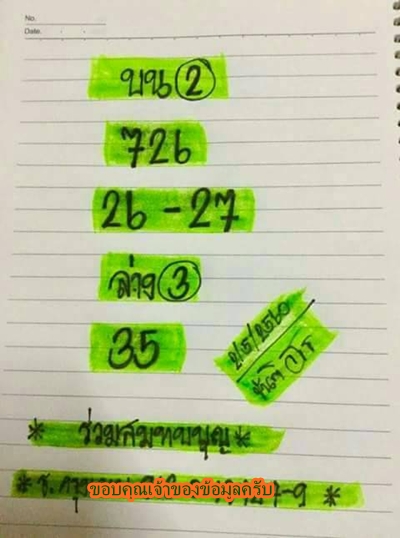 No.
Date.
บน 2
726
26 - 27
ล่าง 3
35
2/5/2560
* ร่วมสมทบบุญ *
ขอบคุณเจ้าของข้อมูลครับ -9 *